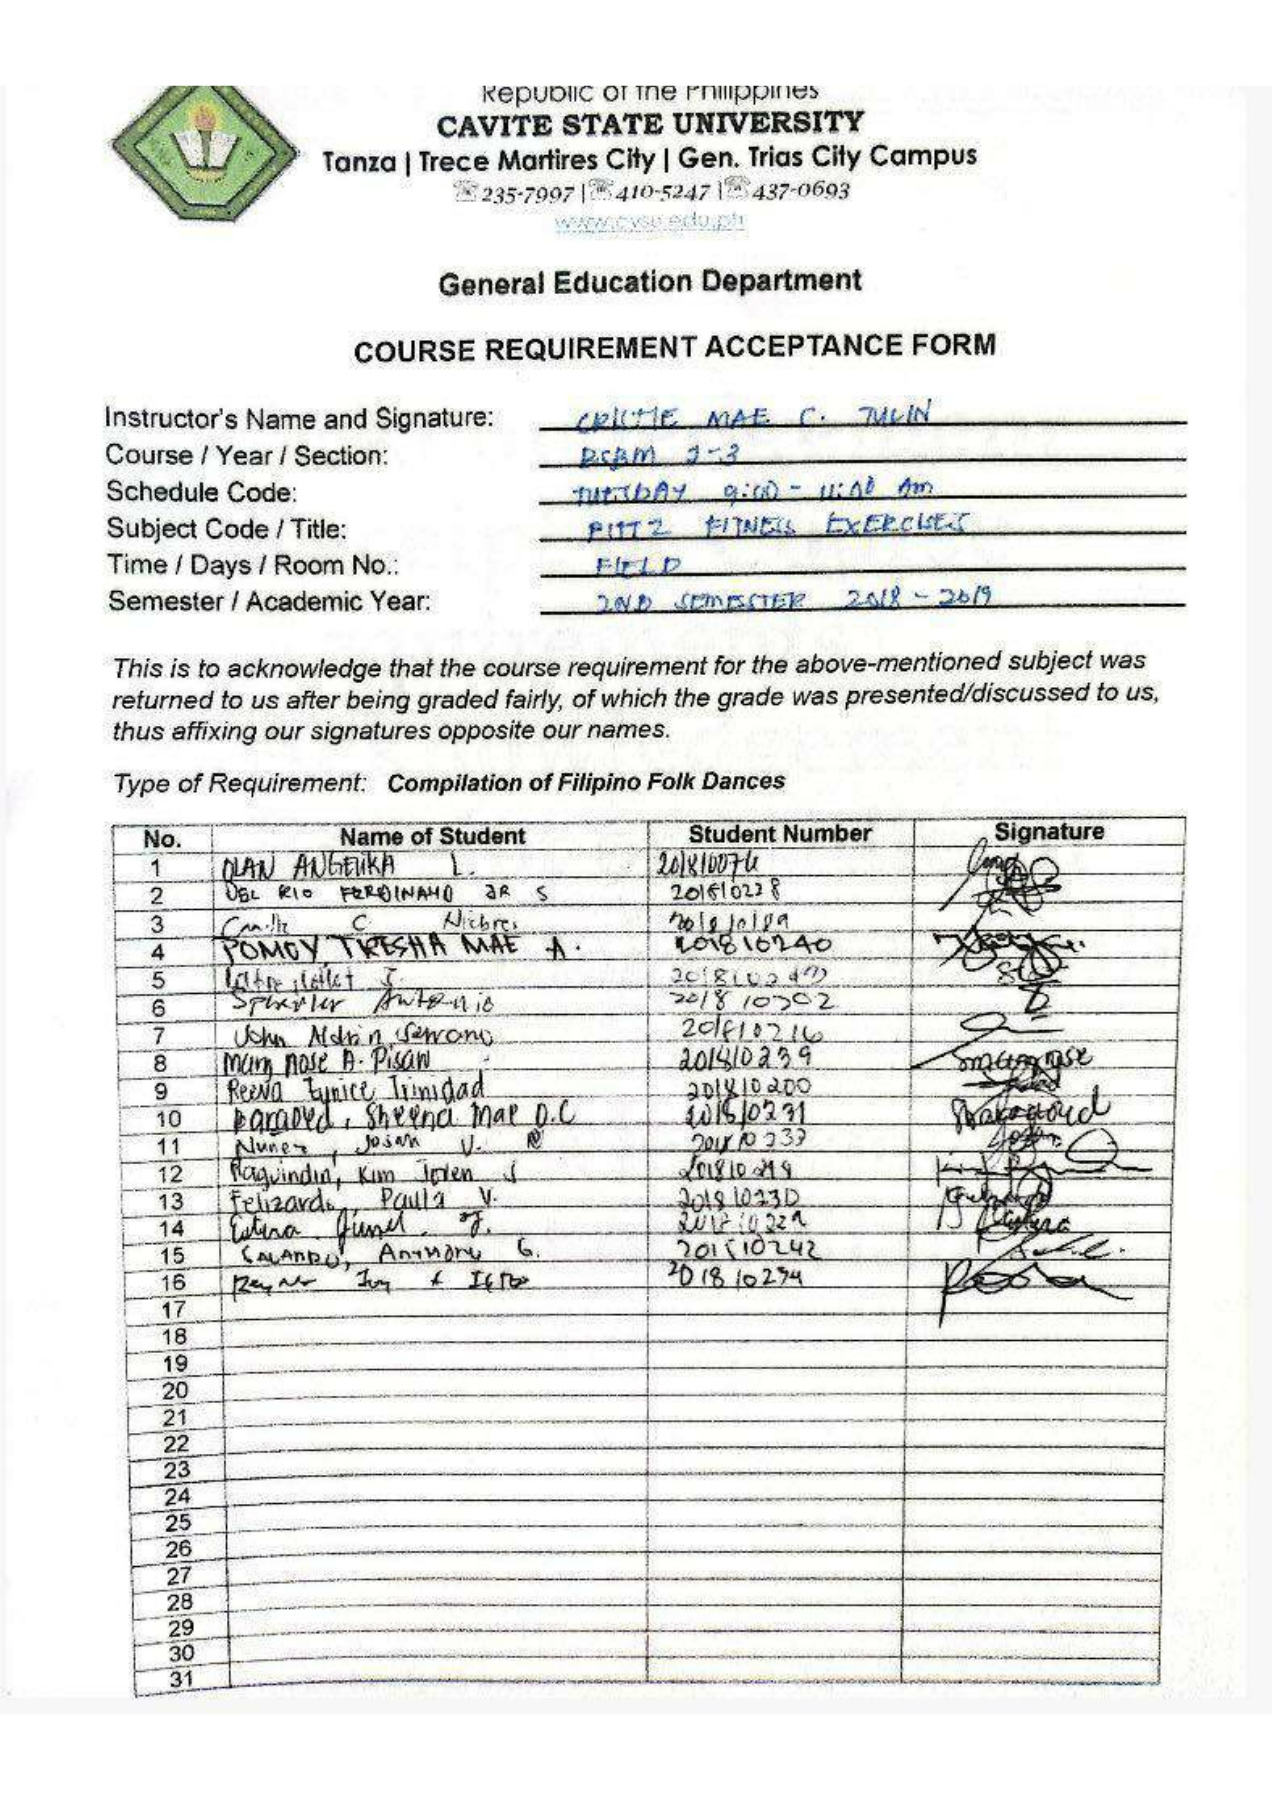 Republic of the Philippines
CAVITE STATE UNIVERSITY
Tanza | Trece Martires City | Gen. Trias City Campus
☏235-7997 |☏410-5247 |☏437-0693
www.cvsu.edu.ph
General Education Department
COURSE REQUIREMENT ACCEPTANCE FORM
Instructor's Name and Signature: MAE C. TULIN
Course / Year / Section: BSBM 1-3
Schedule Code: TUESDAY 9:00 - 11:00 AM
Subject Code / Title: FITNESS EXERCISES
Time / Days / Room No.: FIELD
Semester / Academic Year: 2ND SEMESTER 2018 - 2019
This is to acknowledge that the course requirement for the above-mentioned subject was
returned to us after being graded fairly, of which the grade was presented/discussed to us,
thus affixing our signatures opposite our names.
Type of Requirement: Compilation of Filipino Folk Dances
No. Name of Student Student Number Signature
1 OLAN ANGELIKA L.
2 DEL RIO FERDINAND JR S 201810228
3 C
4 POMOY, TRESHA MAE A. 201810240
5
6 Antonio 201810202
7 John Aldrin Serrano 201810216
8 Mary Rose A. Pisaw 201810239
9 Reeva Eunice Trinidad 201810200
10 Baraoed, Sheena Mae D.C 201810231
11 Nunez, Josah V. 201810233
12 Raguindin, Kim Joven J
13 Felizardo, Paula V. 201810230
14
15 Anthony G. 201810242
16 201810234
17
18
19
20
21
22
23
24
25
26
27
28
29
30
31